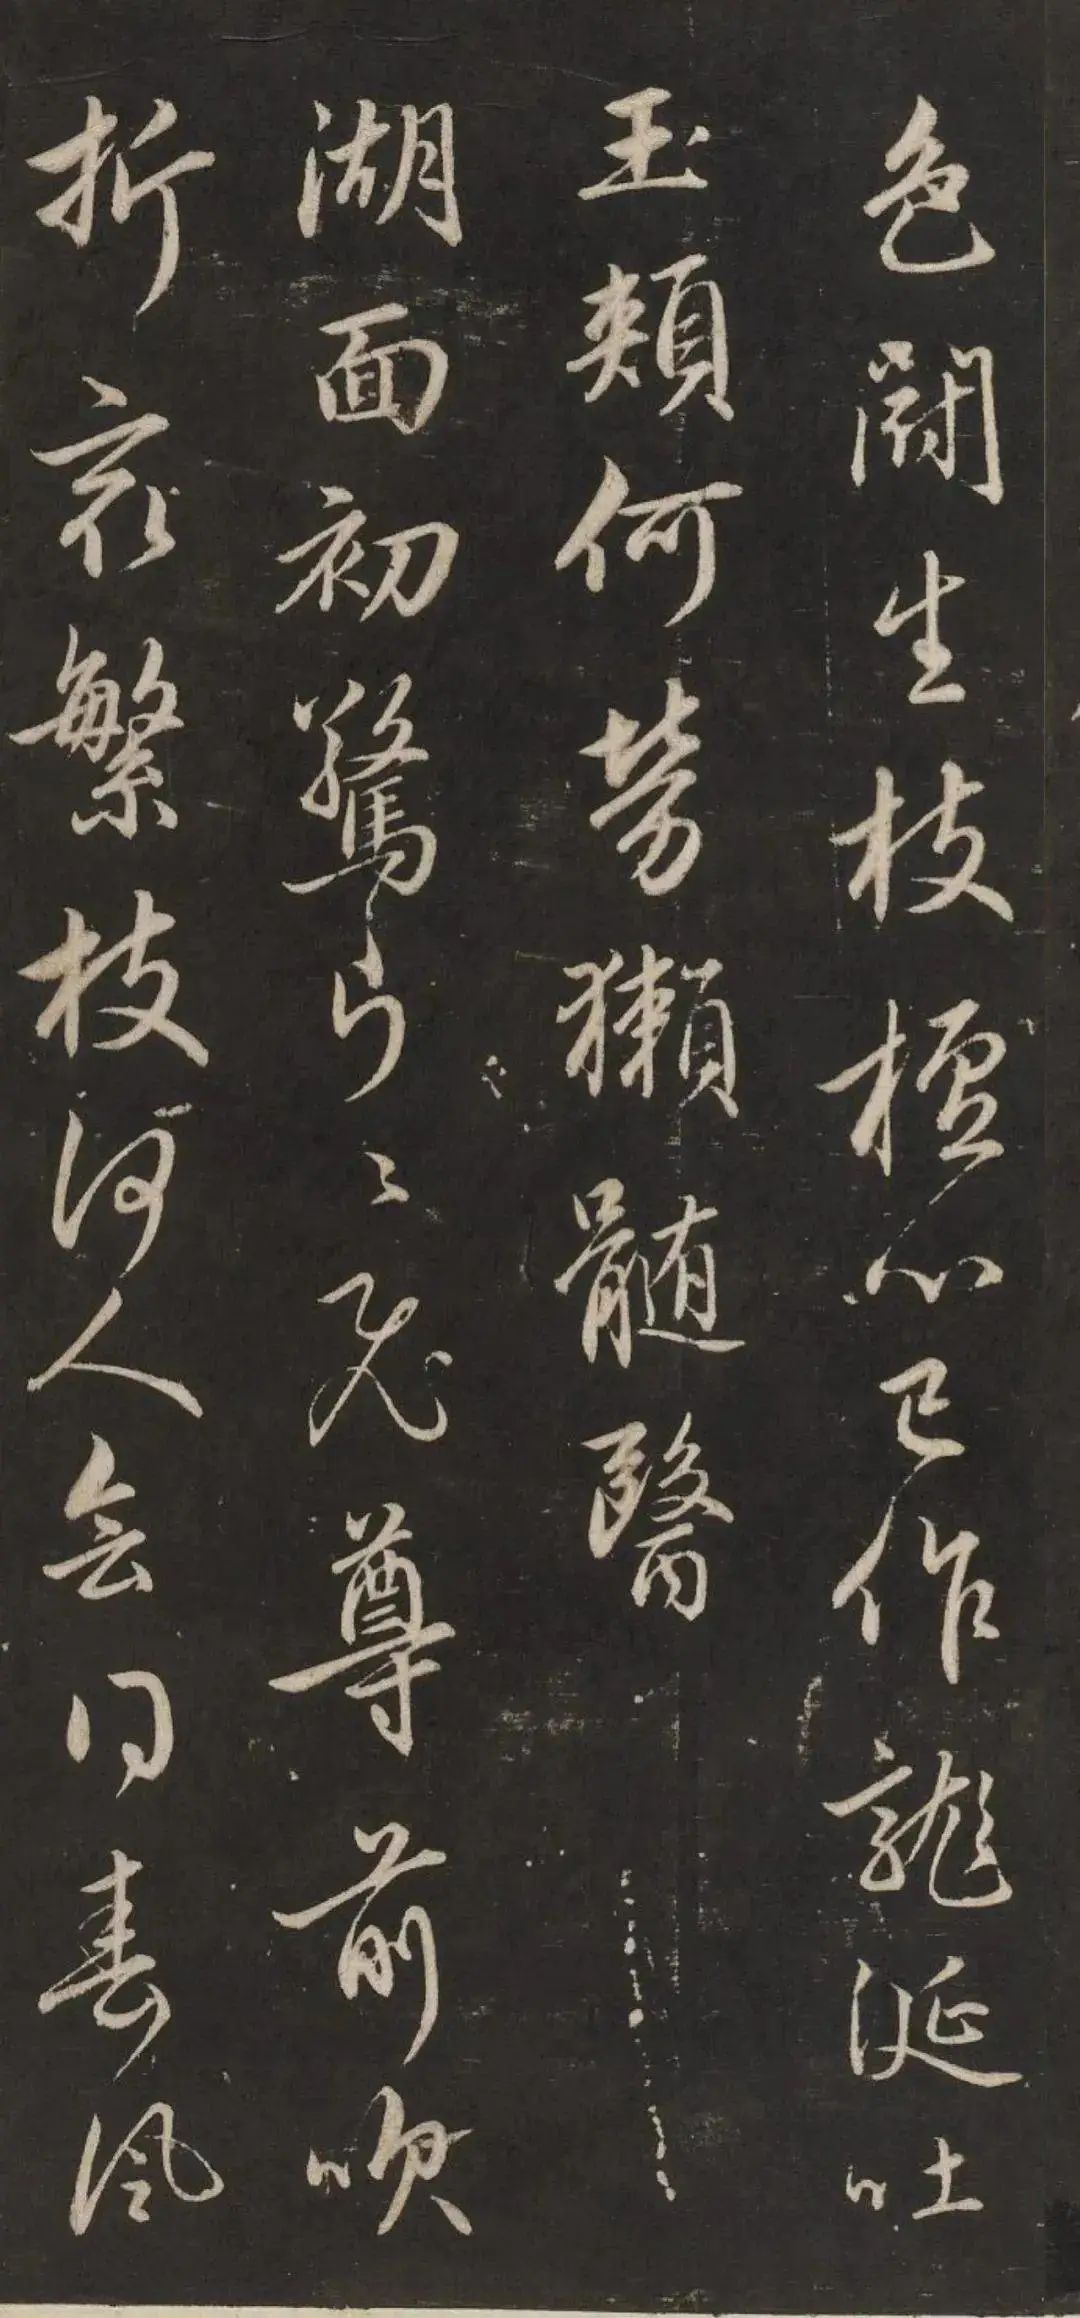 色闘生枝檀心已作龍涎吐
玉頰何勞獺髓醫
湖面初驚片〻飛尊前吹
折最繁枝何人會得春風